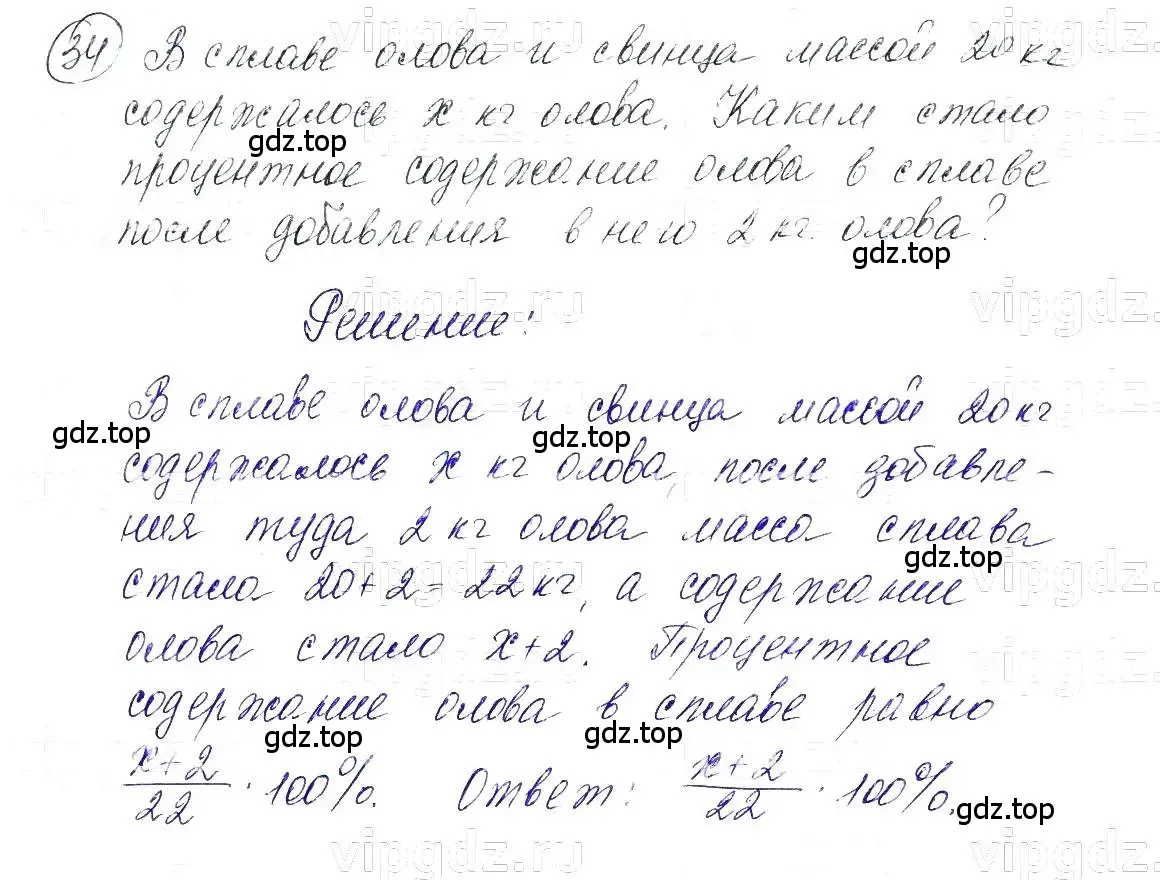 34 В сплаве олова и свинца массой 20 кг
содержалось x кг олова. Каким стало
процентное содержание олова в сплаве
после добавления в него 2 кг олова?
Решение:
В сплаве олова и свинца массой 20 кг
содержалось x кг олова, после добавле-
ния туда 2 кг олова масса сплава
стала 20+2=22 кг, а содержание
олова стало x+2. Процентное
содержание олова в сплаве равно
x+2/22 · 100%. Ответ: x+2/22 · 100%.
gdz.top
gdz.top
gdz.top
gdz.top
gdz.top
gdz.top
gdz.top
gdz.top
vipgdz.ru
vipgdz.
vipgdz.ru
vipgdz.
vipgdz.ru
vipgdz.
vipgdz.ru
vipgdz.
vipgdz.ru
vipgdz.